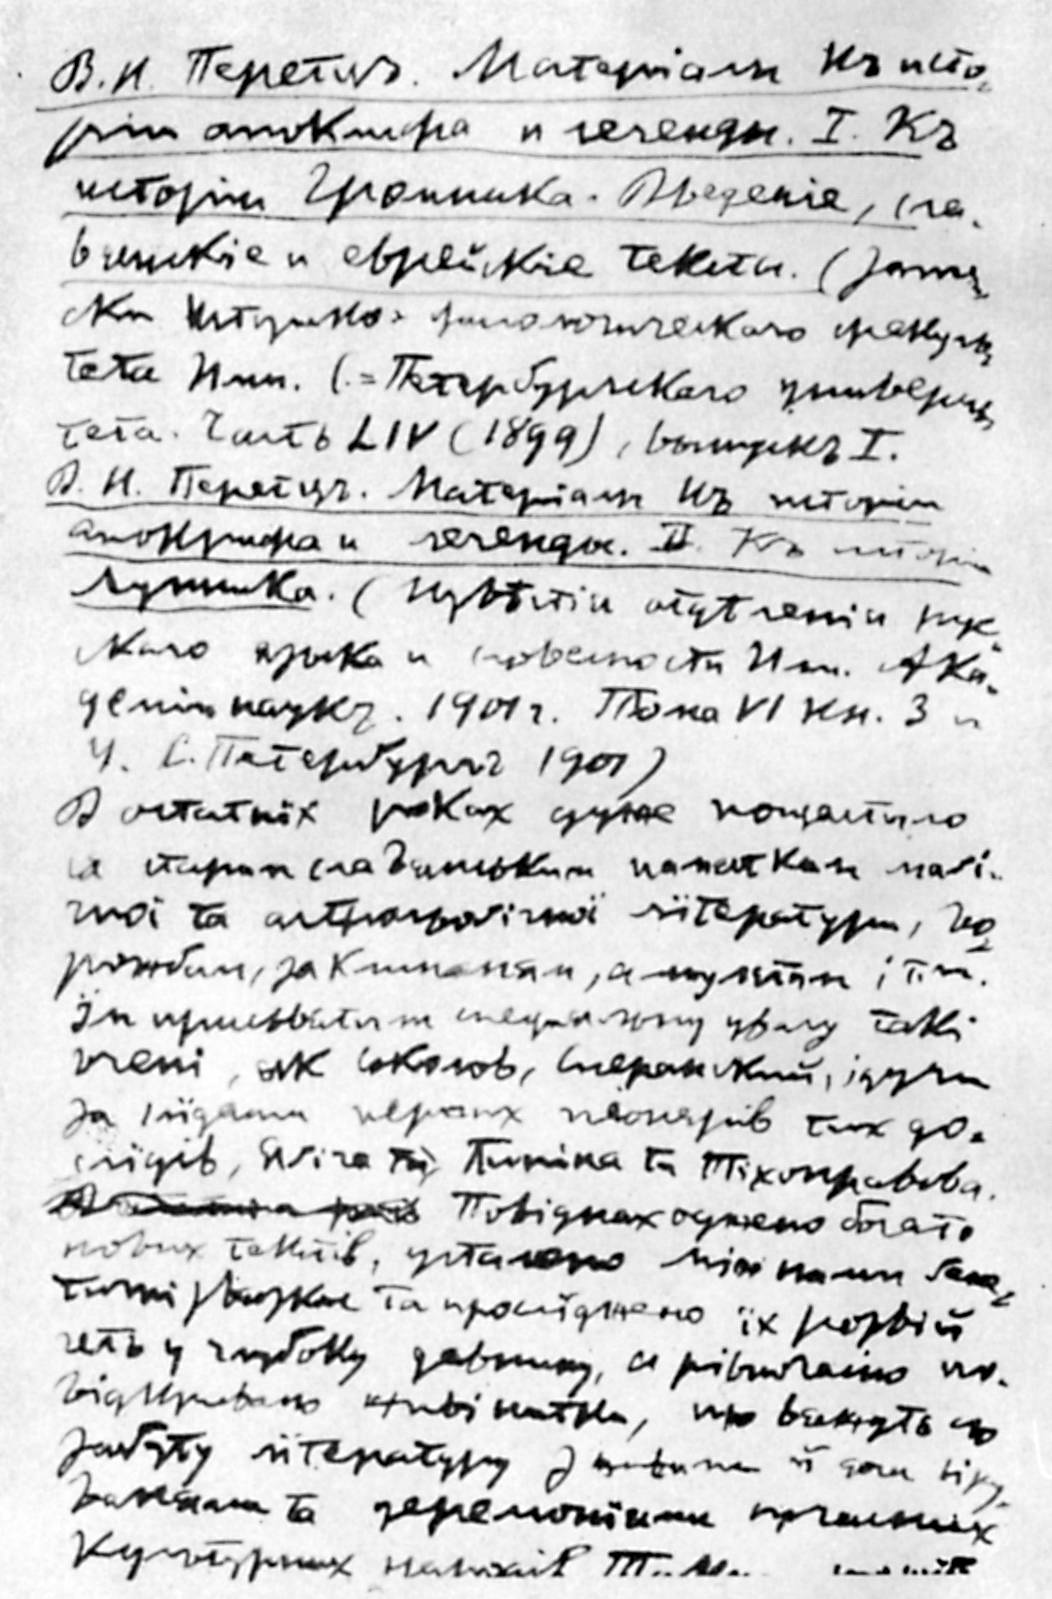 В. Н. Перетцъ. Матеріалы къ исто-
ріи апокрифа и легенды. I. Къ
исторіи Громника. Введеніе, сла-
вянскіе и еврейскіе тексты. (Запис-
ки Историко-филологическаго факуль-
тета Имп. С.-Петербургскаго университ-
тета. Часть LIV (1899), выпускъ I.
В. Н. Перетцъ. Матеріалы къ исторіи
апокрифа и легенды. II. Къ исторіи
Лунника. (Извѣстія отдѣленія рус-
скаго языка и словесности Имп. Ака-
деміи наукъ. 1901 г. Тома VI кн. 3 и
4. С. Петербургъ 1901)
В остатніх роках дуже пощастило
старим славянським памяткам магі-
чної та астрологічної літератури, во-
рожбам, заклинаням, амулетам і т.и.
Їм присьвятили спеціяльну увагу такі
вчені, як Соколов, Сперанский, ідучи
за слїдами перших піонерів тих до-
слїдів, Ягіча Пипіна та Тіхонравова.
Повіднаходжено богато
нових текстів, уставлено між ними
звязки та прослїджено їх розвій
геть у глубоку давнину, а рівночасно по-
відкривано стежки, що вяжуть сю
забуту літературу з й віру-
ванями та церемоніями
культурних